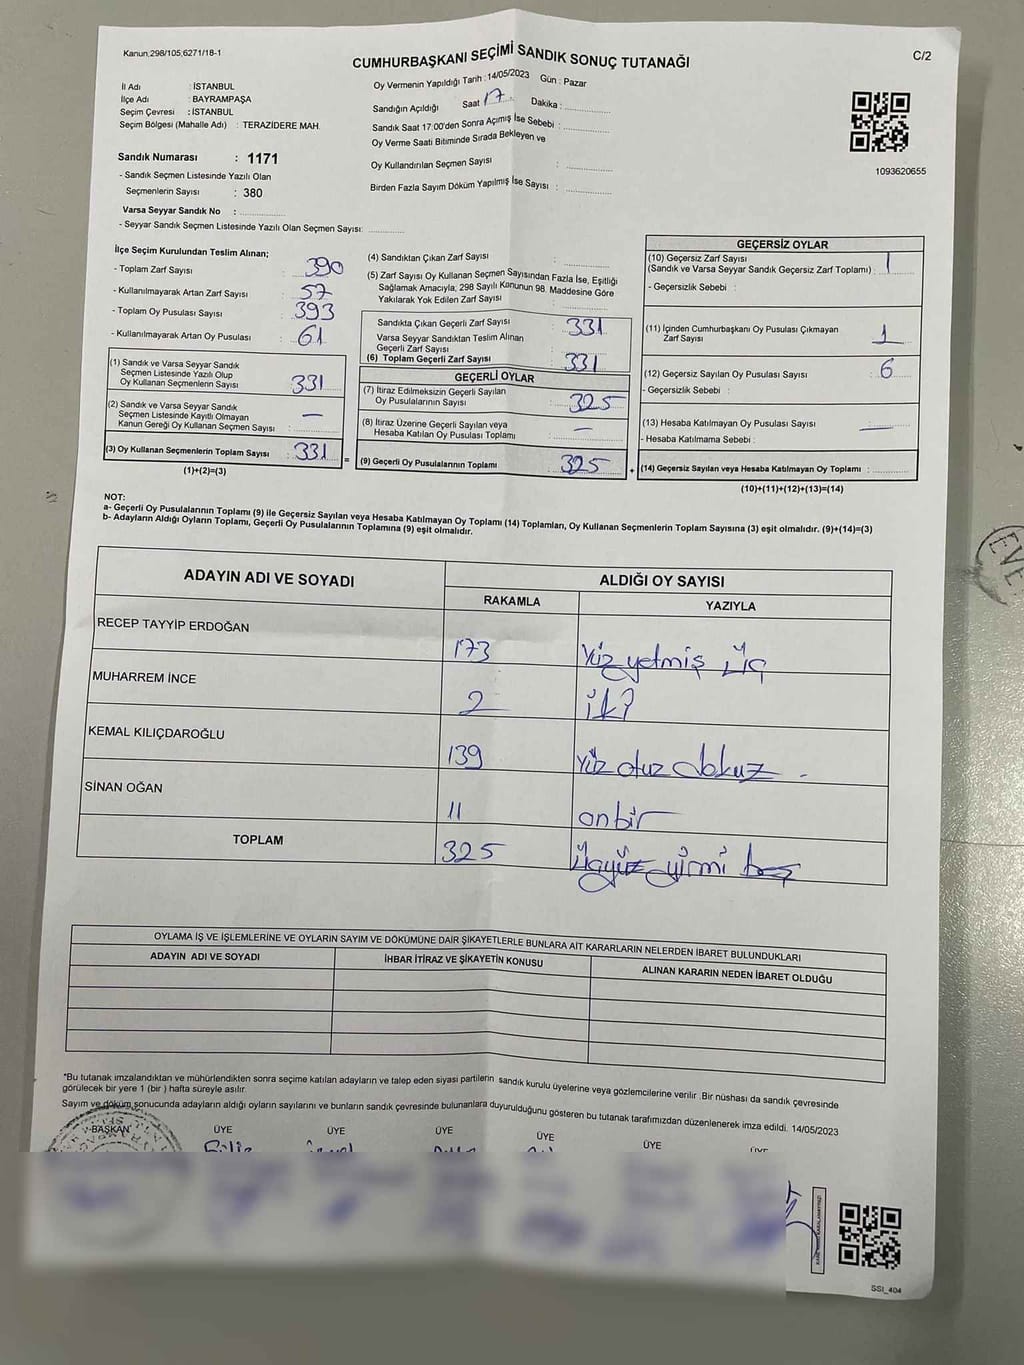 Kanun,298/105,6271/18-1
CUMHURBAŞKANI SEÇİMİ SANDIK SONUÇ TUTANAĞI
C/2
İl Adı : İSTANBUL
İlçe Adı : BAYRAMPAŞA
Seçim Çevresi : İSTANBUL
Seçim Bölgesi (Mahalle Adı) : TERAZİDERE MAH.
Sandık Numarası : 1171
- Sandık Seçmen Listesinde Yazılı Olan
Seçmenlerin Sayısı : 380
Varsa Seyyar Sandık No :
- Seyyar Sandık Seçmen Listesinde Yazılı Olan Seçmen Sayısı:
Oy Vermenin Yapıldığı Tarih : 14/05/2023 Gün : Pazar
Sandığın Açıldığı Saat 17 Dakika :
Sandık Saat 17:00'den Sonra Açımış İse Sebebi :
Oy Verme Saati Bitiminde Sırada Bekleyen ve
Oy Kullandırılan Seçmen Sayısı :
Birden Fazla Sayım Döküm Yapılmış İse Sayısı :
1093620655
İlçe Seçim Kurulundan Teslim Alınan;
- Toplam Zarf Sayısı : 390
- Kullanılmayarak Artan Zarf Sayısı : 57
- Toplam Oy Pusulası Sayısı : 393
- Kullanılmayarak Artan Oy Pusulası : 61
(1) Sandık ve Varsa Seyyar Sandık
Seçmen Listesinde Yazılı Olup
Oy Kullanan Seçmenlerin Sayısı : 331
(2) Sandık ve Varsa Seyyar Sandık
Seçmen Listesinde Kayıtlı Olmayan
Kanun Gereği Oy Kullanan Seçmen Sayısı : —
(3) Oy Kullanan Seçmenlerin Toplam Sayısı : 331 =
(1)+(2)=(3)
(4) Sandıktan Çıkan Zarf Sayısı :
(5) Zarf Sayısı Oy Kullanan Seçmen Sayısından Fazla İse, Eşitliği
Sağlamak Amacıyla, 298 Sayılı Kanunun 98. Maddesine Göre
Yakılarak Yok Edilen Zarf Sayısı :
Sandıkta Çıkan Geçerli Zarf Sayısı : 331
Varsa Seyyar Sandıktan Teslim Alınan
Geçerli Zarf Sayısı :
(6) Toplam Geçerli Zarf Sayısı : 331
GEÇERLİ OYLAR
(7) İtiraz Edilmeksizin Geçerli Sayılan
Oy Pusulalarının Sayısı : 325
(8) İtiraz Üzerine Geçerli Sayılan veya
Hesaba Katılan Oy Pusulası Toplamı : —
(9) Geçerli Oy Pusulalarının Toplamı : 325 +
GEÇERSİZ OYLAR
(10) Geçersiz Zarf Sayısı
(Sandık ve Varsa Seyyar Sandık Geçersiz Zarf Toplamı) : 1
- Geçersizlik Sebebi :
(11) İçinden Cumhurbaşkanı Oy Pusulası Çıkmayan
Zarf Sayısı : 1
(12) Geçersiz Sayılan Oy Pusulası Sayısı : 6
- Geçersizlik Sebebi :
(13) Hesaba Katılmayan Oy Pusulası Sayısı : —
- Hesaba Katılmama Sebebi :
(14) Geçersiz Sayılan veya Hesaba Katılmayan Oy Toplamı :
(10)+(11)+(12)+(13)=(14)
NOT:
a- Geçerli Oy Pusulalarının Toplamı (9) ile Geçersiz Sayılan veya Hesaba Katılmayan Oy Toplamı (14) Toplamları, Oy Kullanan Seçmenlerin Toplam Sayısına (3) eşit olmalıdır. (9)+(14)=(3)
b- Adayların Aldığı Oyların Toplamı, Geçerli Oy Pusulalarının Toplamına (9) eşit olmalıdır.
ADAYIN ADI VE SOYADI ALDIĞI OY SAYISI
RAKAMLA YAZIYLA
RECEP TAYYİP ERDOĞAN 173 Yüz yetmiş üç
MUHARREM İNCE 2 iki
KEMAL KILIÇDAROĞLU 139 Yüz otuz dokuz
SİNAN OĞAN 11 onbir
TOPLAM 325 Üçyüz yirmi beş
OYLAMA İŞ VE İŞLEMLERİNE VE OYLARIN SAYIM VE DÖKÜMÜNE DAİR ŞİKAYETLERLE BUNLARA AİT KARARLARIN NELERDEN İBARET BULUNDUKLARI
ADAYIN ADI VE SOYADI İHBAR İTİRAZ VE ŞİKAYETİN KONUSU ALINAN KARARIN NEDEN İBARET OLDUĞU
*Bu tutanak imzalandıktan ve mühürlendikten sonra seçime katılan adayların ve talep eden siyasi partilerin sandık kurulu üyelerine veya gözlemcilerine verilir .Bir nüshası da sandık çevresinde
görülecek bir yere 1 (bir ) hafta süreyle asılır.
Sayım ve döküm sonucunda adayların aldığı oyların sayılarını ve bunların sandık çevresinde bulunanlara duyurulduğunu gösteren bu tutanak tarafımızdan düzenlenerek imza edildi. 14/05/2023
BAŞKAN ÜYE ÜYE ÜYE ÜYE ÜYE ÜYE
SSI_404